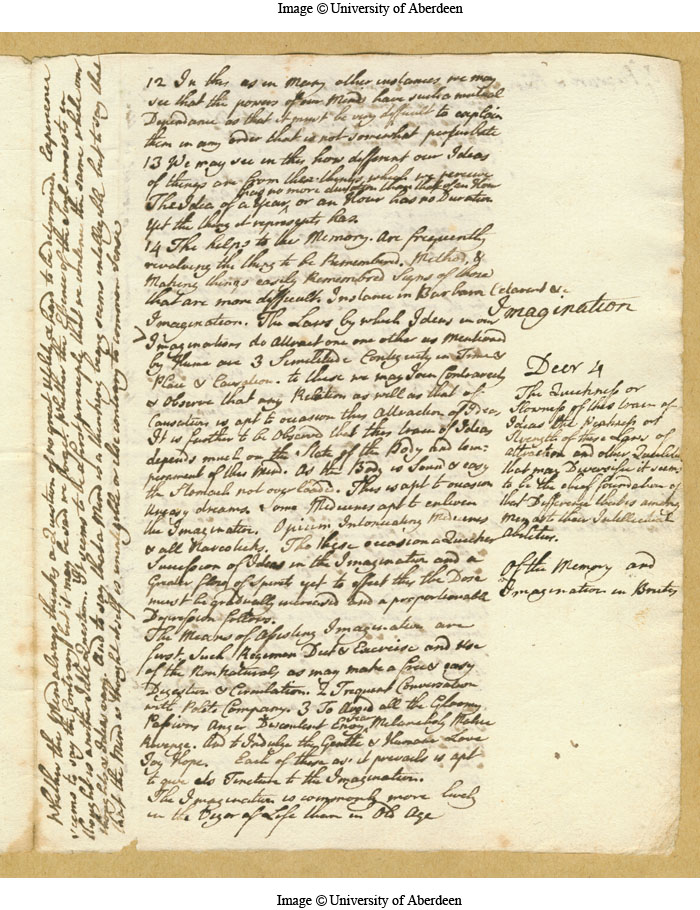 Image © University of Aberdeen
12 In this as in many other instances we may
see that the powers of our Minds have such a mutual
Dependance as that it must be very difficult to explain
them in any order that is not somewhat
13 We may see in this how different our Ideas
of things are from these things which we perceive
The Idea of a Year has no more duration than that of an Hour
or an Hour has no Duration
yet the thing it represents has.
14 The helps to the Memory. Are frequently
revolving the thing to be Remembered. Method, &
Making things easily Remembered Signs of those
that are more difficult. Instance in Barbara Celarent &c
Imagination
Imagination. The Laws by which Ideas in our
Imaginations do Attract one one other as Mentioned
by Hume are 3 Similitude Contiguity in Time &
Place & Causation. to these we may Join Contrariety
& Observe that any Relation as well as that of
Causation is apt to occasion this Attraction of Ideas
It is further to be Observed that this train of Ideas
depends much on the State of the Body and tem-
perament of the Mind. As the Body is Sound & easy
the Stomach not overloaded. This is apt to occasion
Uneasy dreams, & some Medicines apt to enliven
the Imagination. Opium Intoxicating Medicines
& all Narcoticks. The these occasion a Quicker
Succession of Ideas in the Imagination and a
Greater flow of Spirits yet to effect this the Dose
must be gradually increased and a proportionable
Depression follows.
The Means of Assisting Imagination are
first, Such Regimen Diet & Exercise and Use
of the Non Naturals as may make a free & easy
Digestion & Circulation. 2 Frequent Conversation
with Polite Company. 3 To Avoid all the Gloomy
Passions Anger Discontent Envy Melancholy Malice
Revenge. And to Indulge the Gentle & Humane Love
Joy Hope. Each of these as it prevails is apt
to give its Tincture to the Imagination.
The Imagination is commonly more lively
in the Vigor of Life than in Old Age
Decr 4
The Quickness or
Slowness of this train of
Ideas the Weakness or
Strength of these Laws of
attraction and other Qualities
that may Diversifie it seems
to be the chief foundation of
that Difference that is among
Men as to their Intellectual
Abilities.
Of the Memory and
Imagination in Brutes
Whether the Mind always thinks a Question of no great Use & hard to be determined. Experience
seems to say the Contrary but it may be said we forget. Whether the Essence of the Soul consists in
thought is another Idle Question. It seems to be a first principle that we continue the same while our
thoughts & Ideas vary. And to say that a Mind is a thinking being seems
but the Mind is thought itself is unintelligible or else contrary to common Sense
Image © University of Aberdeen